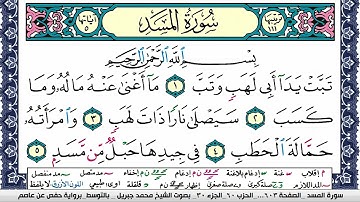 سُورَةُ المَسَدِ
ترتيبها ١١١
آياتها ٥
بِسْمِ اللَّهِ الرَّحْمَٰنِ الرَّحِيمِ
تَبَّتْ يَدَا أَبِي لَهَبٍ وَتَبَّ ١ مَا أَغْنَىٰ عَنْهُ مَالُهُ وَمَا
كَسَبَ ٢ سَيَصْلَىٰ نَارًا ذَاتَ لَهَبٍ ٣ وَامْرَأَتُهُ
حَمَّالَةَ الْحَطَبِ ٤ فِي جِيدِهَا حَبْلٌ مِّن مَّسَدٍ ٥
سورة المسد الصفحة ٦٠٣ الجزء ٣٠ الحزب ٦٠ بصوت الشيخ محمد جبريل بالتوسط برواية حفص عن عاصم